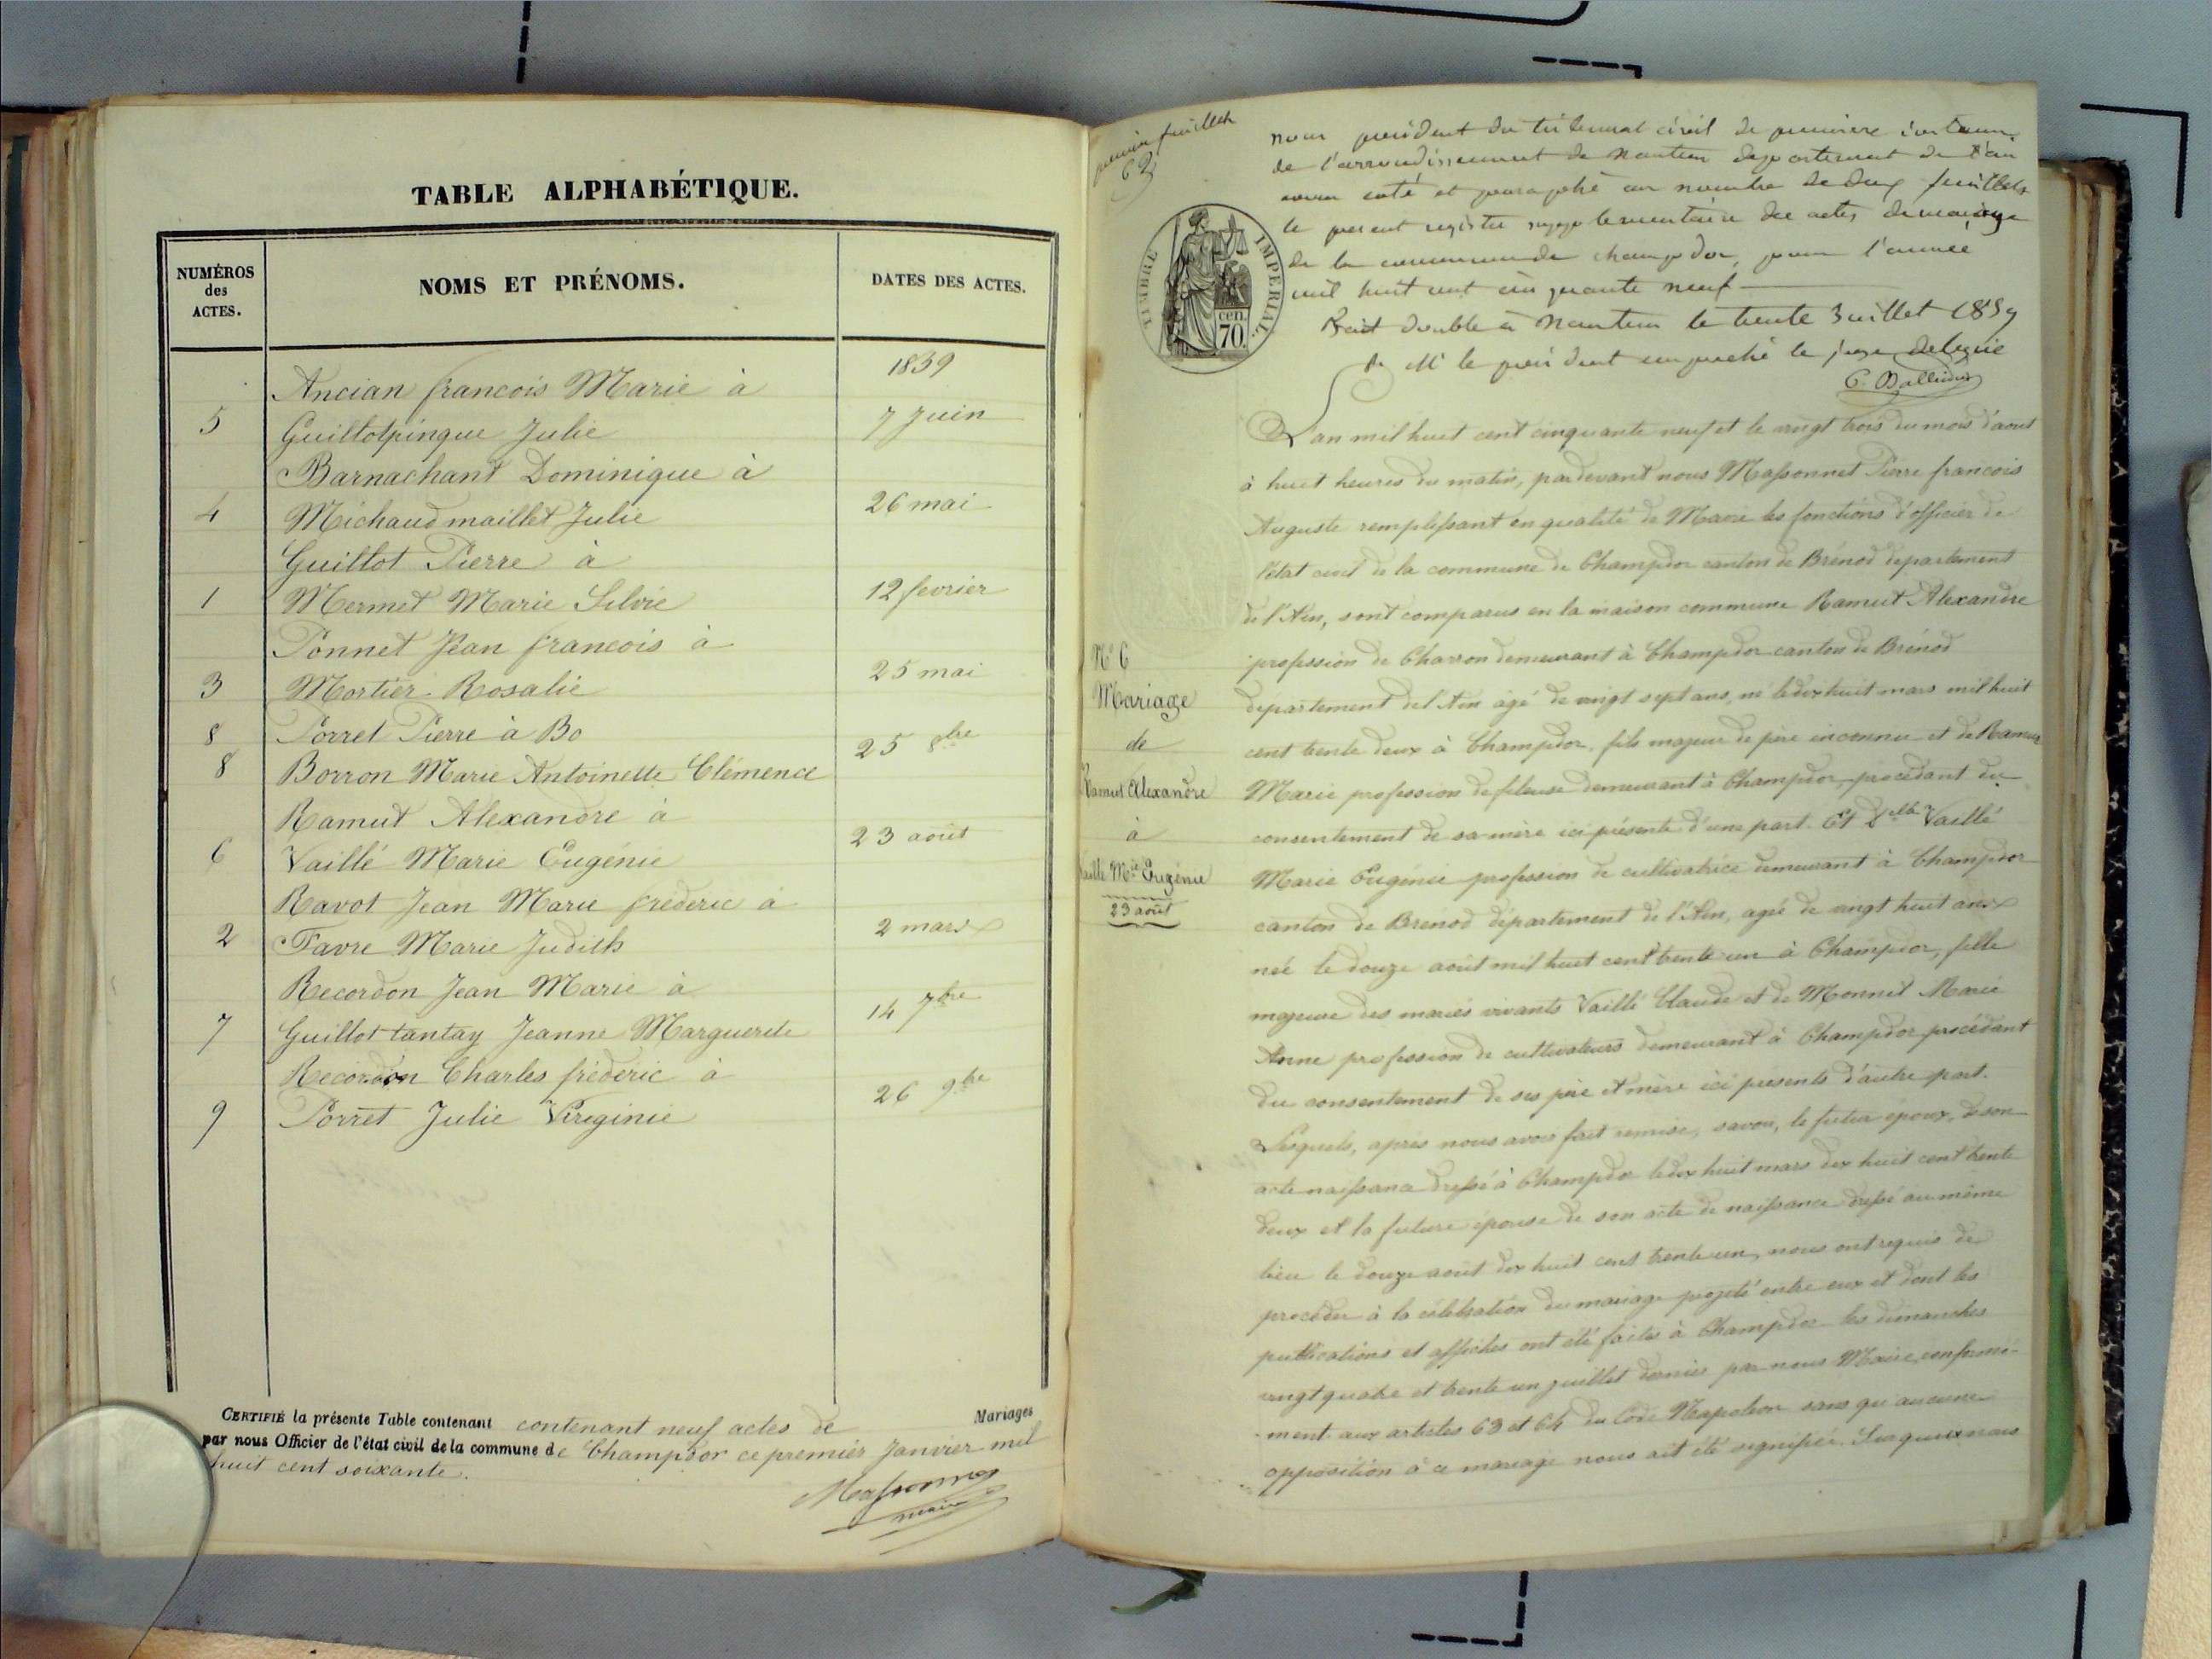 TABLE ALPHABÉTIQUE.
NUMÉROS des ACTES.
NOMS ET PRÉNOMS.
DATES DES ACTES.
1859
Ancian francois Marie à
5 Guillotpinque Julie 7 Juin
Barnachant Dominique à
4 Michaud maillet Julie 26 mai
Guillot Pierre à
1 Mermet Marie Silvie 12 fevrier
Ponnet Jean francois à
3 Mortier Rosalie 25 mai
8 Porret Pierre à Bo
8 Borron Marie Antoinette Clémence 25 8bre
Ramut Alexandre à
6 Vaillé Marie Eugénie 23 août
Ravot Jean Marie frederic à
2 Favre Marie Judith 2 mars
Recordon Jean Marie à
7 Guillot tantay Jeanne Marguerite 14 7bre
Recordon Charles fréderic à
9 Porret Julie Vireginie 26 9bre
CERTIFIÉ la présente Table contenant contenant neuf actes de Mariages
par nous Officier de l'état civil de la commune de Champdor ce premier Janvier mil
huit cent soixante.
Massonnet
maire
premier feuillet
nous président du tribunal civil de premiere instance
de l'arrondissement de Nantua departement de l'ain
avons coté et paraphé au nombre de deux feuillets
le present registre supplementaire des actes de mariage
de la commune de champdor, pour l'année
mil huit cent cinquante neuf
Fait double à Nantua le trente Juillet 1859
P. Mr le président empeché le juge delegué
TIMBRE IMPERIAL
70 cen.
L'an mil huit cent cinquante neuf et le vingt trois du mois d'aout
à huit heures du matin, pardevant nous Massonnet Pierre francois
Auguste remplissant en qualité de Maire les fonctions d'officier de
l'état civil de la commune de Champdor canton de Brénod departement
de l'Ain, sont comparus en la maison commune Ramut Alexandre
profession de Charron demeurant à Champdor canton de Brénod
département de l'Ain âgé de vingt sept ans, né le dix huit mars mil huit
cent trente deux à Champdor, fils majeur de père inconnu et de Ramut
Marie profession de fileuse demeurant à Champdor, procédant du
consentement de sa mère ici présente d'une part. Et Delle Vaillé
Marie Eugénie profession de cultivatrice demeurant à Champdor
canton de Brenod département de l'Ain, agée de vingt huit ans
née le douze août mil huit cent trente un à Champdor, fille
majeure des mariés vivants Vaillé Claude et de Monnet Marie
Anne profession de cultivateurs demeurant à Champdor procédant
du consentement de ses père et mère ici présents d'autre part.
Lesquels, après nous avoir fait remise, savoir, le futur époux, de son
acte naissance dressé à Champdor le dix huit mars dix huit cent trente
deux et la future épouse de son acte de naissance dressé au même
lieu le douze août dix huit cent trente un, nous ont requis de
procéder à la célébration du mariage projeté entre eux et dont les
publications et affiches ont été faites à Champdor les dimanches
vingt quatre et trente un juillet dernier par nous Maire, conformé-
-ment aux articles 63 et 64 du Code Napoléon sans qu'aucune
opposition à ce mariage nous ait été signifiée.
N° 6
Mariage
de
Ramut Alexandre
à
Vaillé Mie Eugénie
23 août